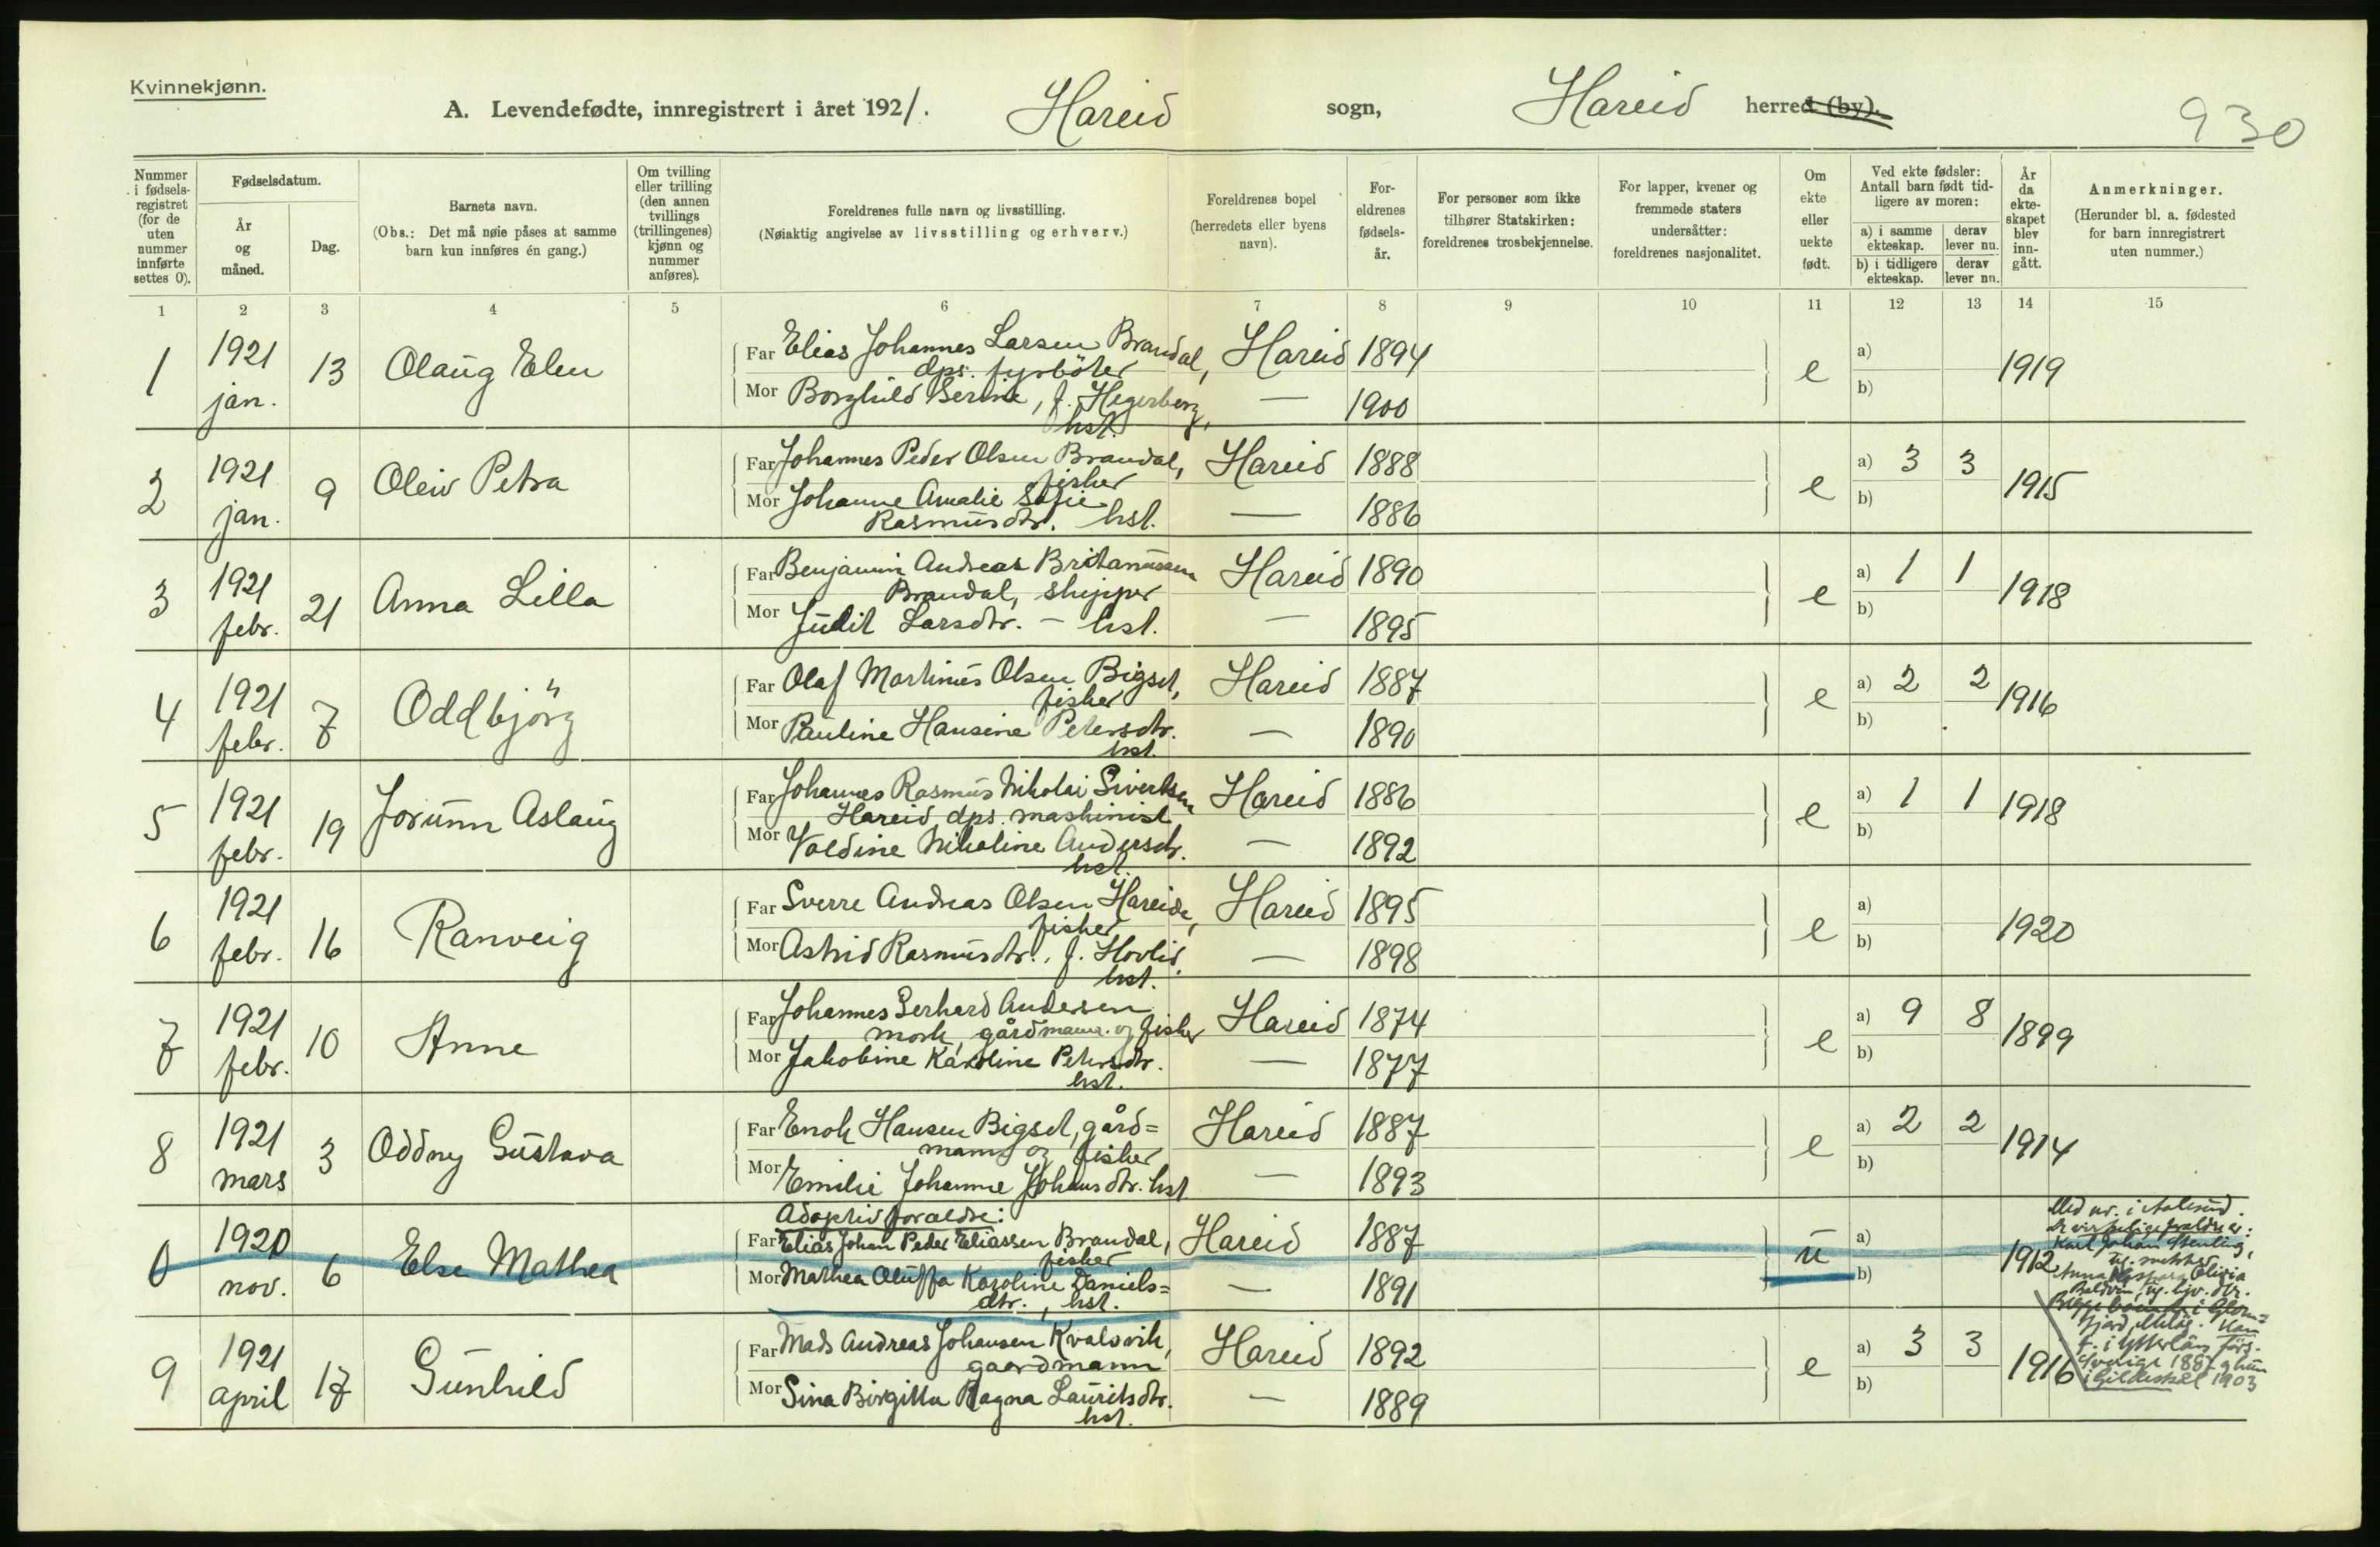 Kvinnekjønn.
A. Levendefødte, innregistrert i året 1921. Hareid sogn, Hareid herred (by).
930
Nummer i fødselsregistret (for de uten nummer innførte settes 0).
Fødselsdatum.
År og måned.
Dag.
Barnets navn.
(Obs.: Det må nøie påses at samme barn kun innføres én gang.)
Om tvilling eller trilling (den annen tvillings (trillingenes) kjønn og nummer anføres).
Foreldrenes fulle navn og livsstilling.
(Nøiaktig angivelse av livsstilling og erhverv.)
Foreldrenes bopel (herredets eller byens navn).
Foreldrenes fødselsår.
For personer som ikke tilhører Statskirken: foreldrenes trosbekjennelse.
For lapper, kvener og fremmede staters undersåtter: foreldrenes nasjonalitet.
Om ekte eller uekte født.
Ved ekte fødsler: Antall barn født tidligere av moren:
a) i samme ekteskap. derav lever nu.
b) i tidligere ekteskap. derav lever nu.
År da ekteskapet blev inngått.
Anmerkninger.
(Herunder bl. a. fødested for barn innregistrert uten nummer.)
1 2 3 4 5 6 7 8 9 10 11 12 13 14 15
1 1921 jan. 13 Olaug Elen
Far Elias Johannes Larsen Brandal, Hareid 1894
dps. fyrböter
Mor Borghild Serine, f. Hegerberg, — 1900
hst.
e a) b) 1919
2 1921 jan. 9 Oleiv Petra
Far Johannes Peder Olsen Brandal, Hareid 1888
fisker
Mor Johanne Amalie Sofie
Rasmusdtr. hst. — 1886
e a) 3 3 b) 1915
3 1921 febr. 21 Anna Lilla
Far Benjamin Andreas Britanussen Hareid 1890
Brandal, skipper
Mor Judit Larsdtr. – hst. — 1895
e a) 1 1 b) 1918
4 1921 febr. 7 Oddbjörg
Far Olaf Martinus Olsen Bigset, Hareid 1887
fisker
Mor Pauline Hansine Petersdtr. — 1890
hst.
e a) 2 2 b) 1916
5 1921 febr. 19 Jorunn Aslaug
Far Johannes Rasmus Nikolai Sivertsen Hareid 1886
Hareid, dps. maskinist
Mor Valdine Nikoline Andersdtr. — 1892
hst.
e a) 1 1 b) 1918
6 1921 febr. 16 Ranveig
Far Sverre Andreas Olsen Hareide, Hareid 1895
fisker
Mor Astrid Rasmusdtr., f. Hovlid, — 1898
hst.
e a) b) 1920
7 1921 febr. 10 Anne
Far Johannes Gerhard Andersen Hareid 1874
Mork, gårdmann og fisker
Mor Jakobine Karoline Petersdtr. — 1877
hst.
e a) 9 8 b) 1899
8 1921 mars 3 Oddny Gustava
Far Enok Hansen Bigset, gård= Hareid 1887
mann og fisker
Mor Emilie Johanne Johansdtr. hst — 1893
e a) 2 2 b) 1914
0 1920 nov. 6 Else Mathea
Adoptivforældre:
Far Elias Johan Peder Eliassen Brandal, Hareid 1887
fisker
Mor Mathea Oluffa Karoline Daniels= — 1891
dtr., hst.
u a) b) 1912
Med nr. i Aalesund.
De virkelige foreldre er:
Karl Johan Stenling,
Anna Olivia
i Glom=
fjord, Meløy.
Sverige 1887
i Gildeskål 1903
9 1921 april 17 Gunhild
Far Mads Andreas Johansen Kvalsvik, Hareid 1892
gaardmann
Mor Sina Birgitta Ragna Lauritsdtr. — 1889
hst.
e a) 3 3 b) 1916